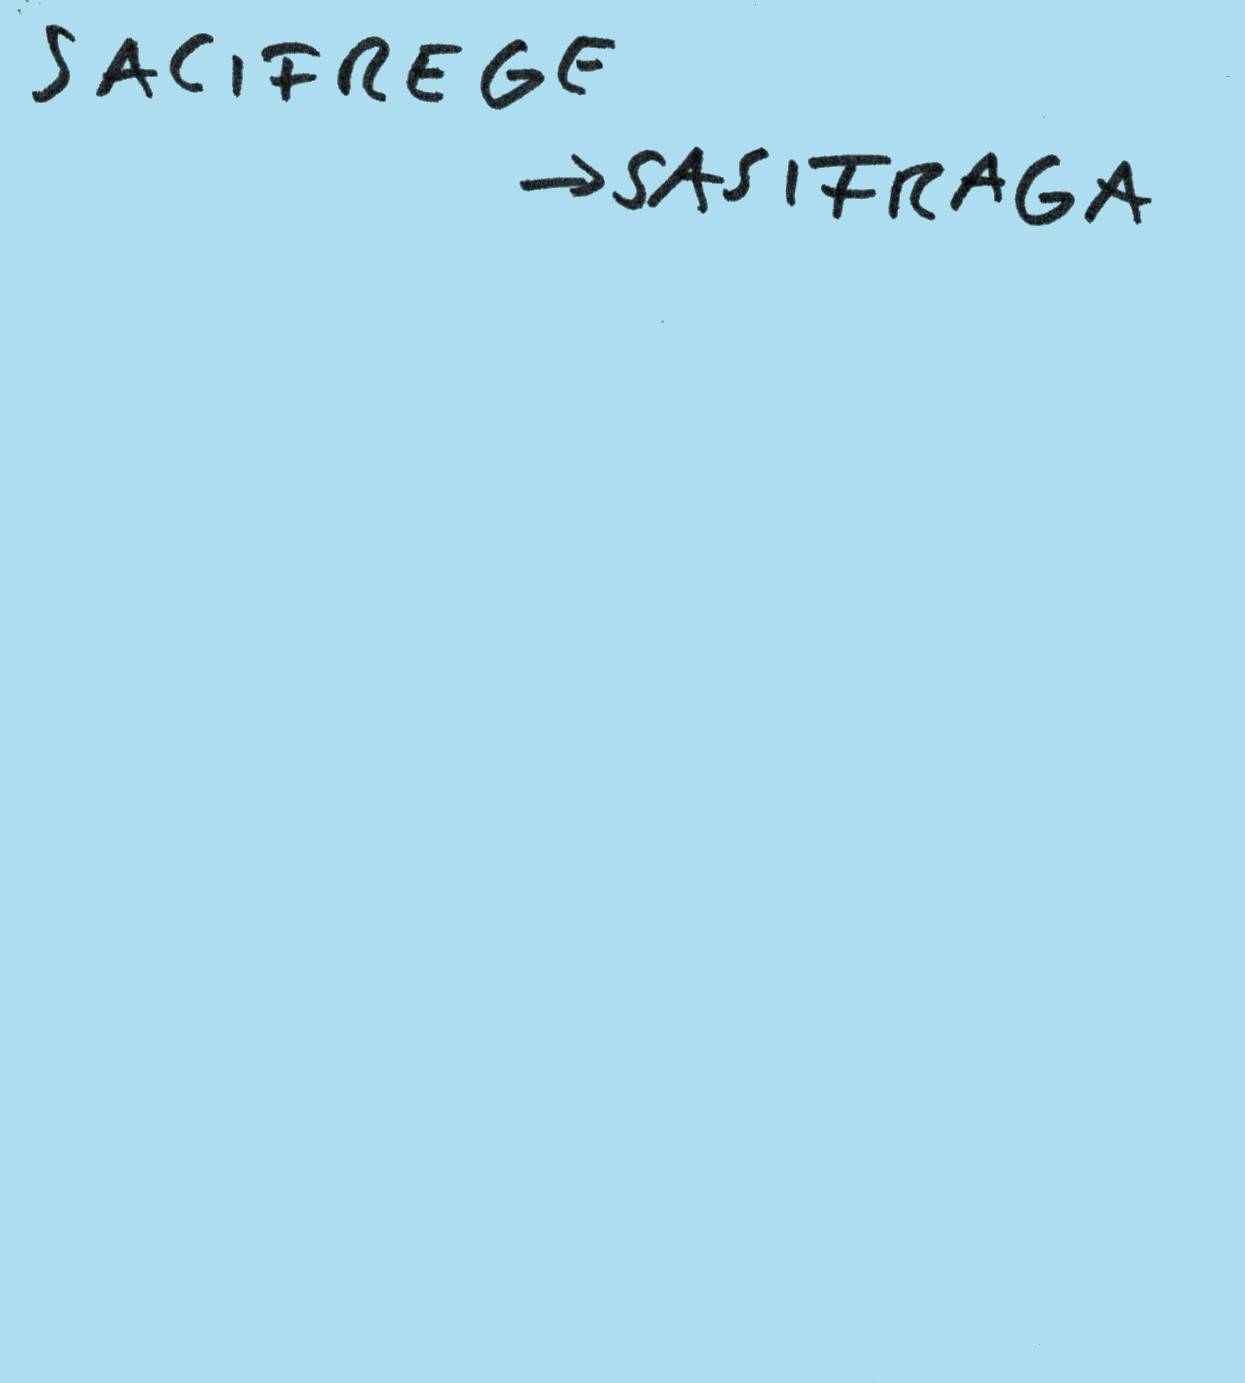 SACIFREGE
→SASIFRAGA